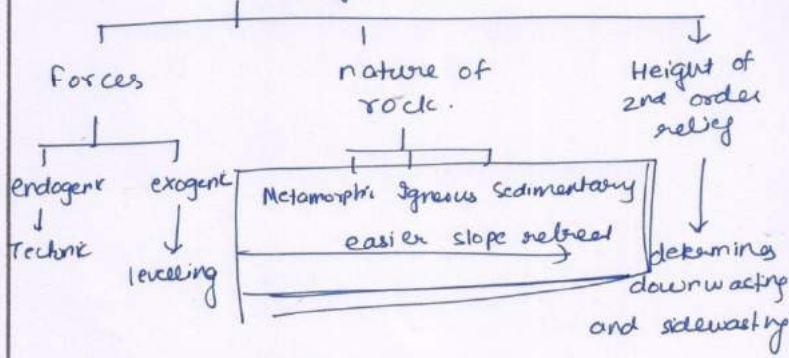 Forces
nature of
rock.
Height of
2nd order
relief
endogent
exogent
Metamorphic Igneous Sedimentary
Techonic
easier slope retreat
levelling
determins
downwasting
and sidewasting